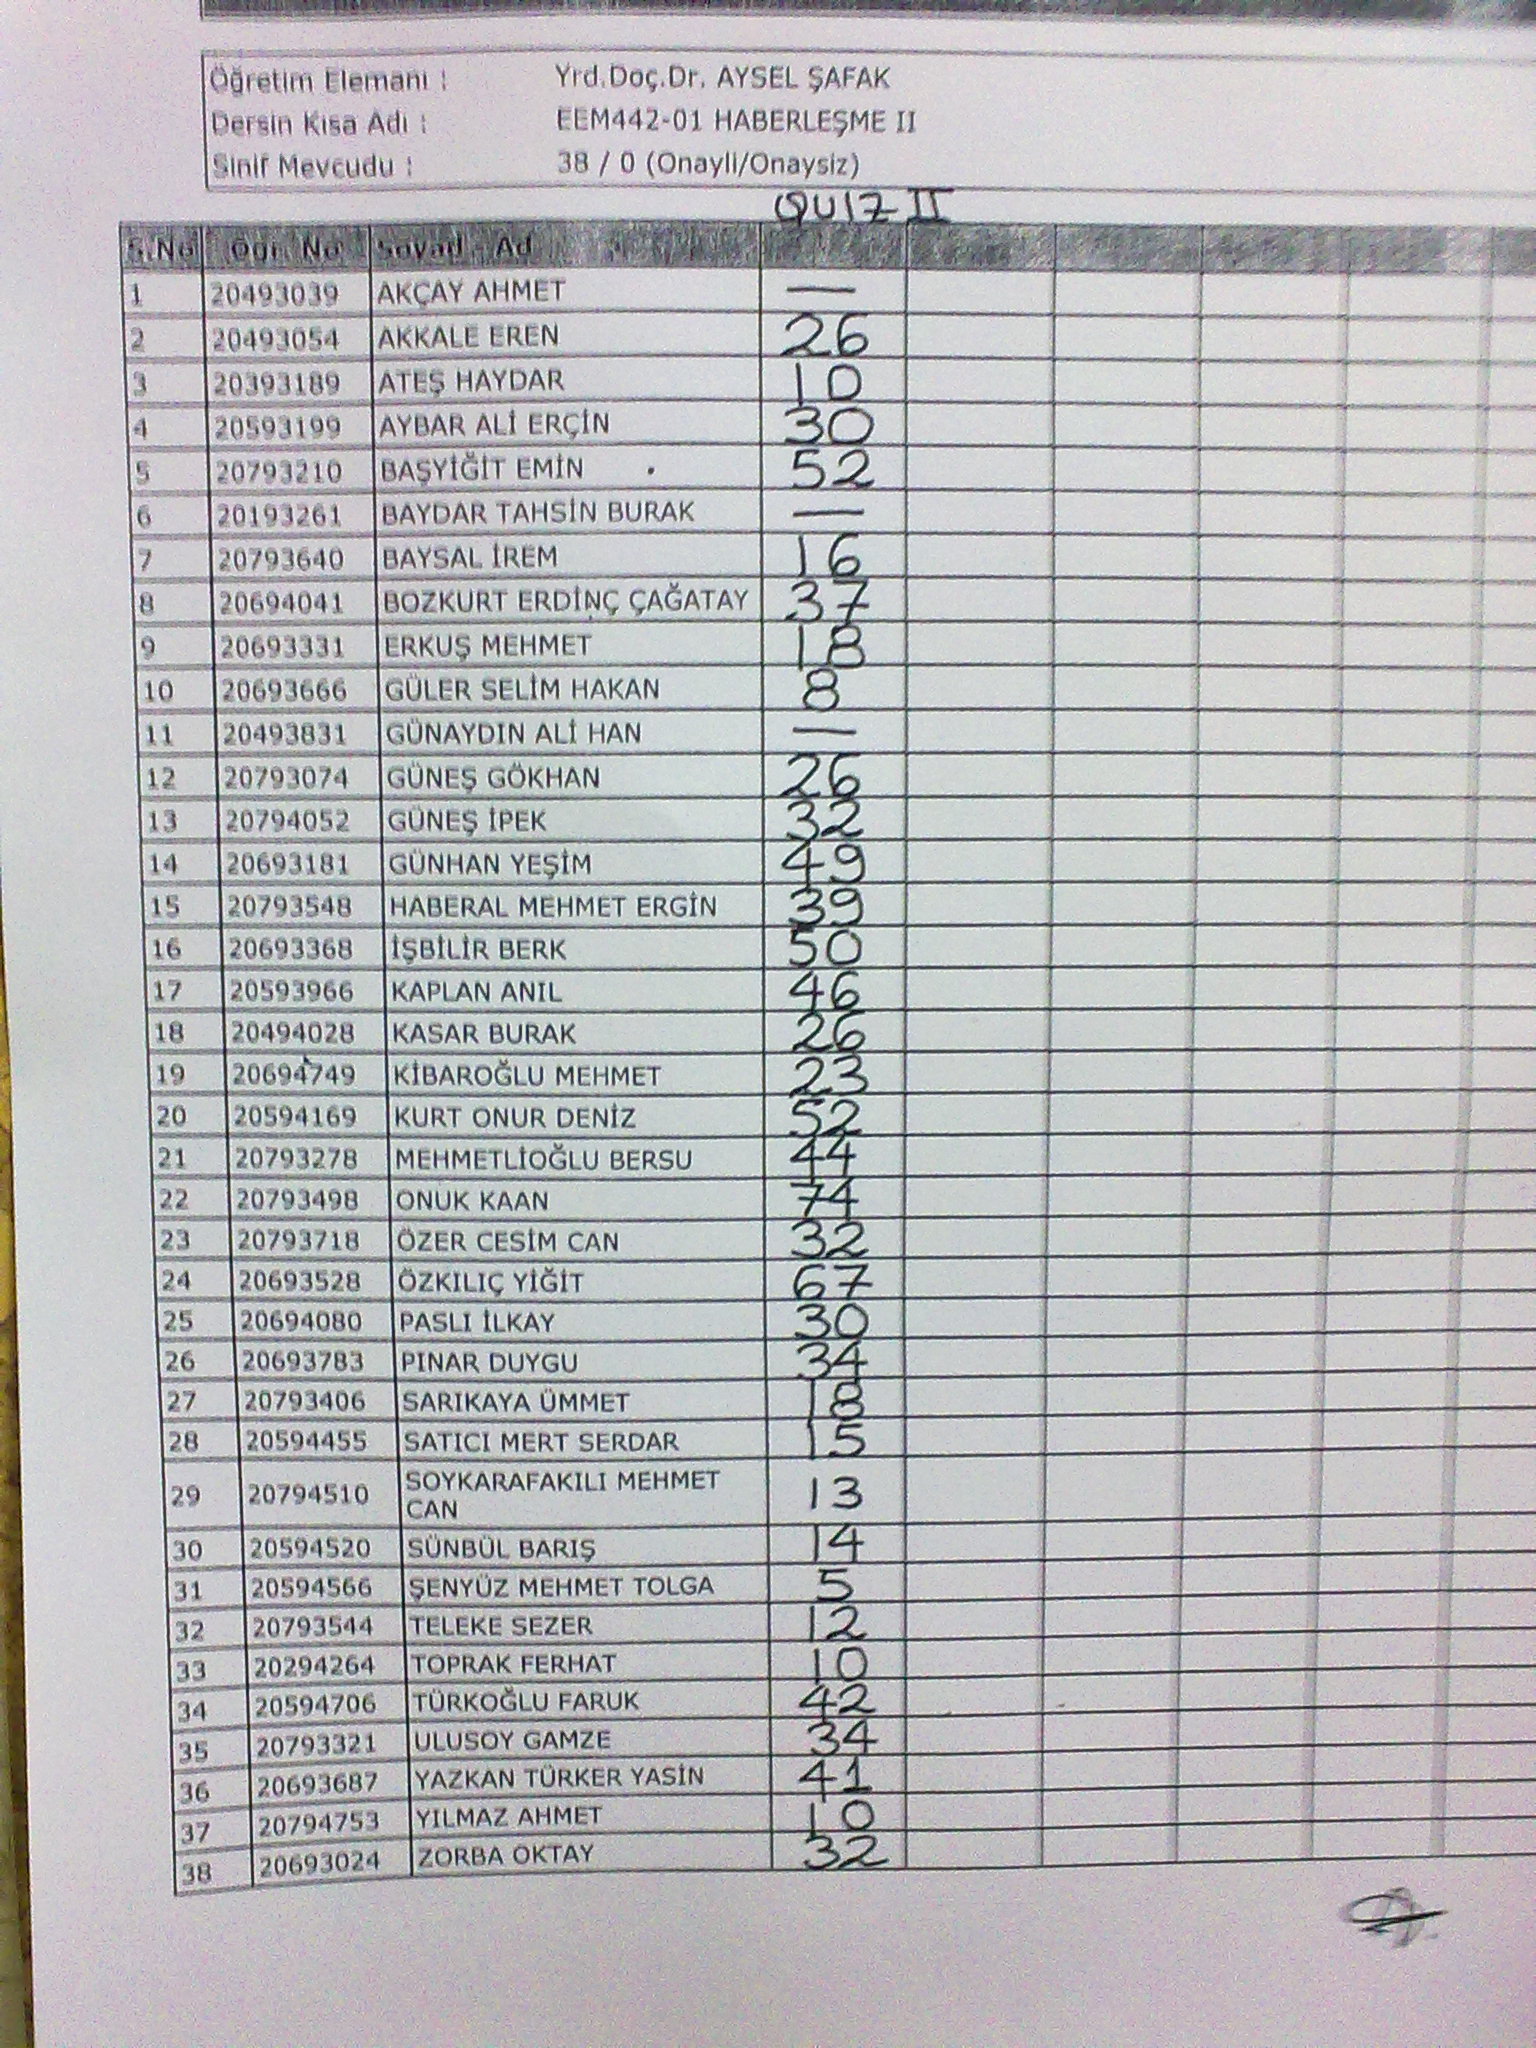 Öğretim Elemanı : Yrd.Doç.Dr. AYSEL ŞAFAK
Dersin Kısa Adı : EEM442-01 HABERLEŞME II
Sınıf Mevcudu : 38 / 0 (Onayli/Onaysiz)
QUIZ II
S.No Ögr. No Soyad - Ad
1 20493039 AKÇAY AHMET —
2 20493054 AKKALE EREN 26
3 20393189 ATEŞ HAYDAR 10
4 20593199 AYBAR ALİ ERÇİN 30
5 20793210 BAŞYİĞİT EMİN 52
6 20193261 BAYDAR TAHSİN BURAK —
7 20793640 BAYSAL İREM 16
8 20694041 BOZKURT ERDİNÇ ÇAĞATAY 37
9 20693331 ERKUŞ MEHMET 18
10 20693666 GÜLER SELİM HAKAN 8
11 20493831 GÜNAYDIN ALİ HAN —
12 20793074 GÜNEŞ GÖKHAN 26
13 20794052 GÜNEŞ İPEK 32
14 20693181 GÜNHAN YEŞİM 49
15 20793548 HABERAL MEHMET ERGİN 39
16 20693368 İŞBİLİR BERK 50
17 20593966 KAPLAN ANIL 46
18 20494028 KASAR BURAK 26
19 20694749 KİBAROĞLU MEHMET 23
20 20594169 KURT ONUR DENİZ 52
21 20793278 MEHMETLİOĞLU BERSU 44
22 20793498 ONUK KAAN 74
23 20793718 ÖZER CESİM CAN 32
24 20693528 ÖZKILIÇ YİĞİT 67
25 20694080 PASLI İLKAY 30
26 20693783 PINAR DUYGU 34
27 20793406 SARIKAYA ÜMMET 18
28 20594455 SATICI MERT SERDAR 15
29 20794510 SOYKARAFAKILI MEHMET CAN 13
30 20594520 SÜNBÜL BARIŞ 14
31 20594566 ŞENYÜZ MEHMET TOLGA 5
32 20793544 TELEKE SEZER 12
33 20294264 TOPRAK FERHAT 10
34 20594706 TÜRKOĞLU FARUK 42
35 20793321 ULUSOY GAMZE 34
36 20693687 YAZKAN TÜRKER YASİN 41
37 20794753 YILMAZ AHMET 10
38 20693024 ZORBA OKTAY 32